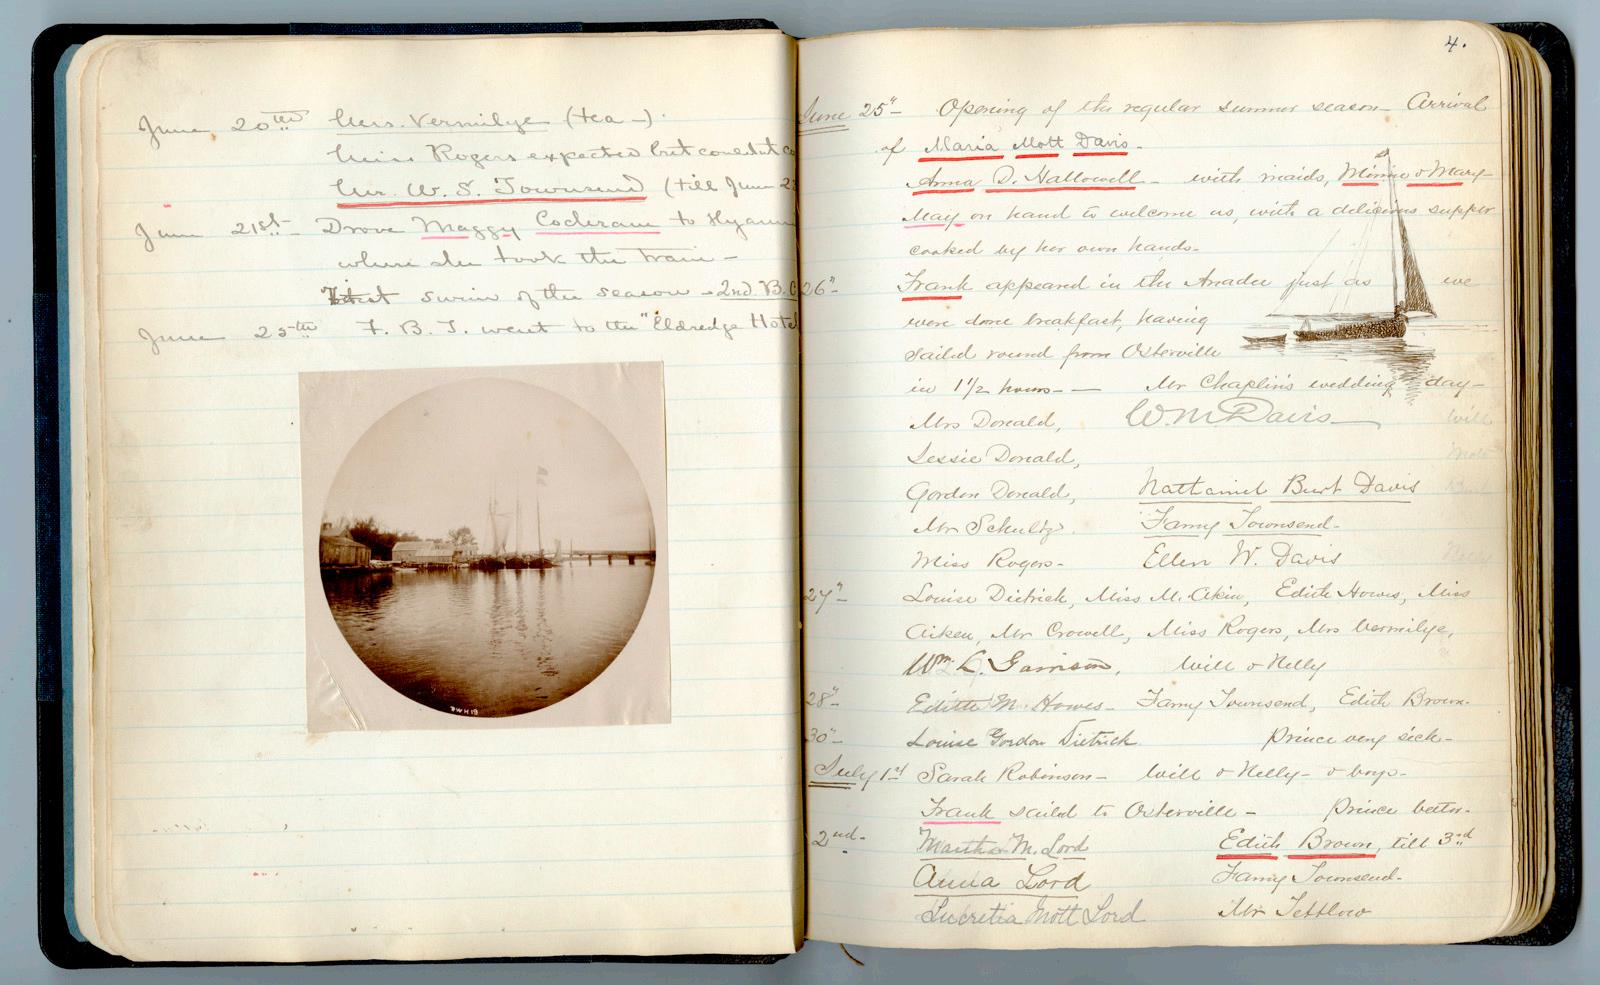 June 20th Mrs. Vermilye (tea —).
Miss Rogers expected but couldn't co
Mr. W. S. Townsend (till June 2
June 21st— Drove Maggy Cochrane to Hyann
where she took the train —
First swim of the season - 2nd. B. C
June 25th F. B. T. went to the "Eldredge Hotel
4.
June 25" — Opening of the regular summer season — Arrival
of Maria Mott Davis.
Anna D. Hallowell — with maids, Minnie & Mary —
May on hand to welcome us, with a delicious supper
cooked by her own hands.
26" — Frank appeared in the just as we
were done breakfast, having
sailed round from Osterville
in 1 1/2 hours — — Mr Chaplin's wedding day —
Mrs Donald, W. M. Davis — Will
Jessie Donald,
Gordon Donald, Nathaniel Burt Davis
Mr Schultz. Fanny Townsend.
Miss Rogers — Ellen W. Davis
27" — Louise Dietrick, Miss M. Akin, Edith Howes, Miss
Aiken, Mr Crowell, Miss Rogers, Mrs Vermilye,
Wm. L. Garrison, Will & Nelly
28" — Edith M. Howes — Fanny Townsend, Edith Brown.
30" — Louise Gordon Dietrick Prince very sick —
July 1st Sarah Robinson — Will & Nelly — & boys —
Frank sailed to Osterville — Prince better.
2nd — Martha M. Lord Edith Brown, till 3rd
Anna Lord Fanny Townsend.
Lucretia Mott Lord Mr Tetlow